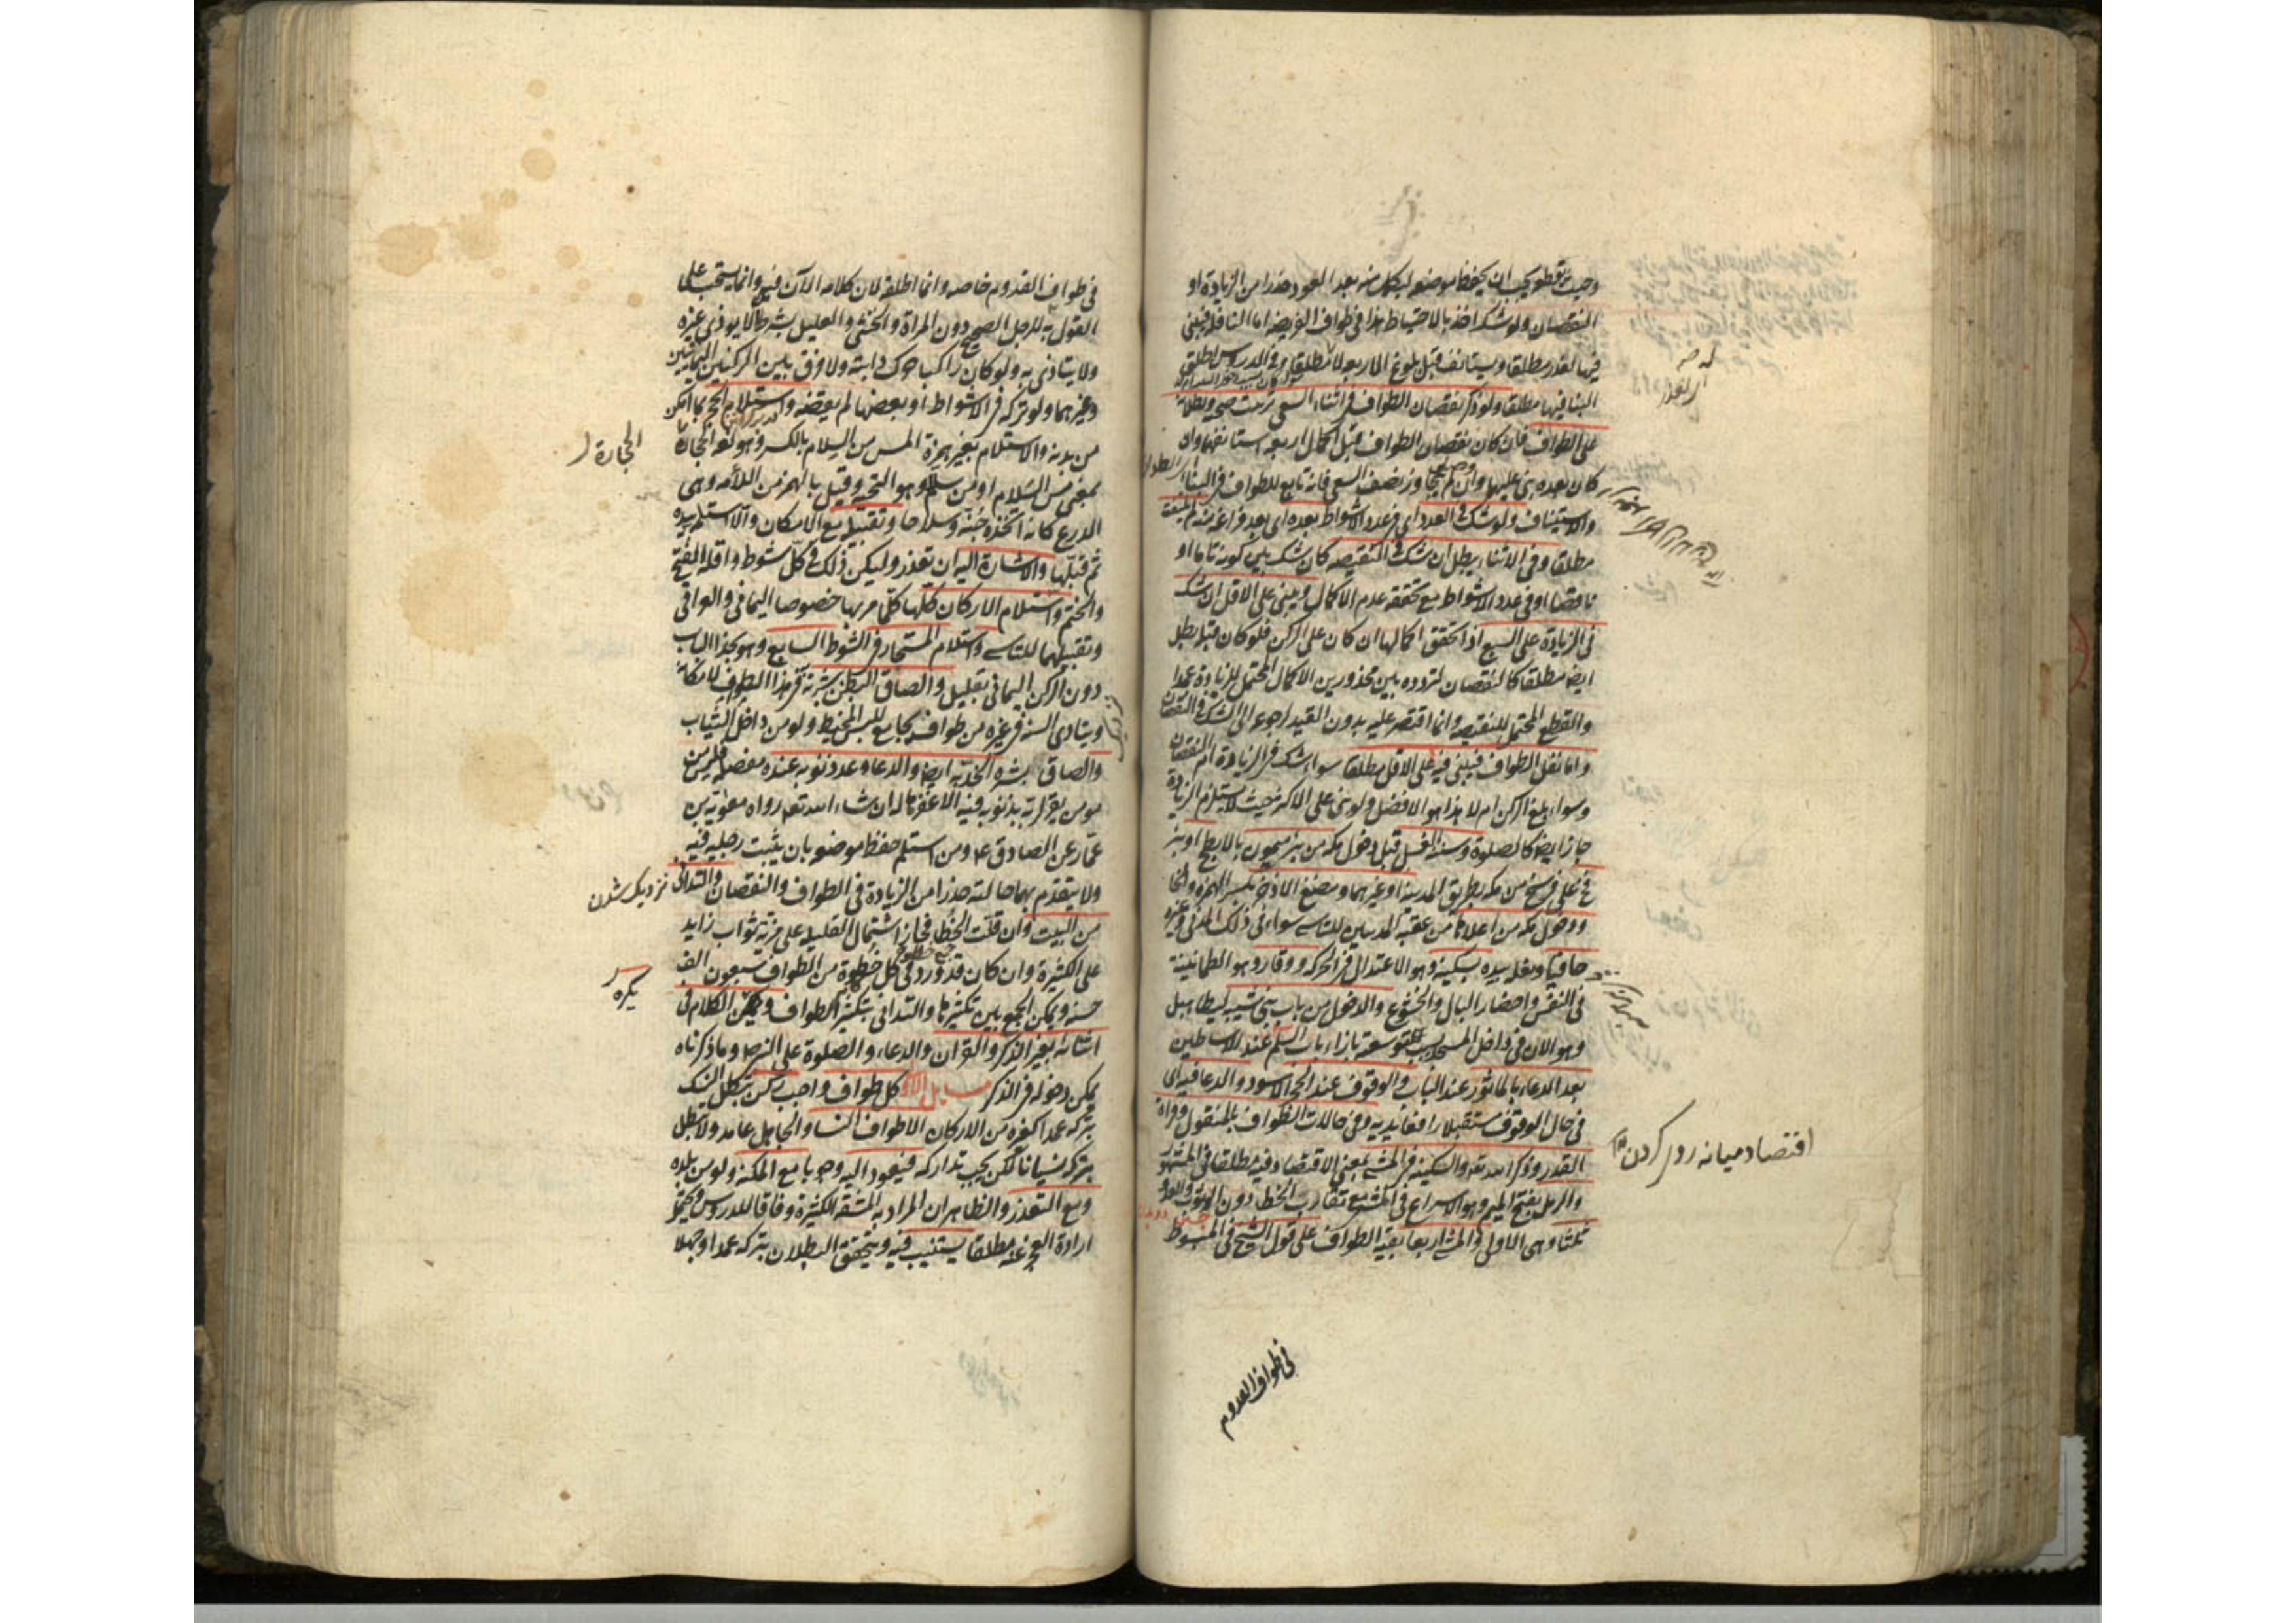 وحيث يقطعه يجب ان يحفظ موضعه ليكمل منه بعد العود حذرا من الزيادة او
النقصان ولو شك اخذ بالاحتياط هذا في طواف الفريضة اما النافلة فيبني
فيها لعذر مطلقا ويستانف قبل بلوغ الاربعة لا مطلقا وفي الدروس اطلق
البنا فيها مطلقا ولو ذكر نقصان الطواف في اثناء السعي ترتبت صحته وبطلانه
على الطواف فان كان نقصان الطواف قبل اكمال اربع استانفهما وان
كان بعده بنى عليهما وان لم يتجاوز نصف السعي فانه تابع للطواف في البناء
والاستيناف ولو شك في العدد اي في عدد الاشواط بعده اي بعد فراغه منه لم يلتفت
مطلقا وفي الاثناء يبطل ان شك في النقيصه كان شك بين كونه تاما او
ناقصا او في عدد الاشواط مع تحققه عدم الاكمال ويبني على الاقل ان شك
في الزيادة على السبع اذا تحقق اكمالها ان كان على الركن فلو كان قبله بطل
ايضا مطلقا كالنقصان لتردده بين محذورين الاكمال المحتمل للزيادة عمدا
والقطع المحتمل للنقيصه وانما اقتصر عليه بدون القيد رجوعا الى الشك في النقصان
واما نفل الطواف فيبني فيه على الاقل مطلقا سواء شك في الزيادة ام النقصان
وسواء بلغ الركن ام لا هذا هو الافضل ولو بنى على الاكثر حيث لا يستلزم الزيادة
جاز ايضا كالصلوة وسننه الغسل قبل دخول مكه من بئر ميمون بالابطح او بئر
فخ على فرسخ من مكه بطريق المدينة او غيرهما ومضغ الاذخر بكسر الهمزة والخا
ودخول مكه من اعلاها من عقبة المدنيين للتاسي سواء في ذلك المدني وغيره
حافيا ونعله بيده بسكينة وهو الاعتدال في الحركه ووقار وهو الطمانينة
في النفس واحضار البال والخشوع والدخول من باب بني شيبه ليطا هبل
وهو الان في داخل المسجد بسبب توسعته بازاء باب السلم عند الاساطين
بعد الدعاء بالماثور عند الباب والوقوف عند الحجر الاسود والدعا فيه اي
في حال الوقوف مستقبلا رافعا يديه وفي حالات الطواف بالمنقول وقراة
القدر وذكر الله تعه والسكينه في المشي بمعنى الاقتصاد فيه مطلقا في المشهور
والرمل بفتح الميم وهو الاسراع في المشي مع تقارب الخطا دون الوثوب والعدو
ثلثا وهي الاولى والمشي اربعا بقية الطواف على قول الشيخ في المبسوط
اقتصاد ميانه روى كردن
في طواف القدوم
في طواف القدوم خاصه وانما اطلقه لان كلامه الآن فيه وانما يستحب على
القول به للرجل الصحيح دون المراة والخنثى والعليل بشرط ان لا يوذي غيره
ولا يتاذى به ولو كان راكبا حرك دابته ولا فرق بين الركنين اليمانيين
وغيرهما ولو تركه في الاشواط او بعضها لم يقضه واستلام الحجر بما امكن
من بدنه والاستلام بغير همزة المس من السلام بالكسر وهو الحجارة
بمعنى مس السلام او من السلم وهو التحيه وقيل بالهمز من اللأمه وهي
الدرع كانه اتخذه جنة وسلاحا وتقبيله مع الامكان والا استلمه بيده
ثم قبلها والاشارة اليه ان تعذر وليكن ذلك في كل شوط واقله الفتح
والختم واستلام الاركان كلها كلما مر بها خصوصا اليماني والعراقي
وتقبيلهما للتاسي واستلام المستجار في الشوط السابع وهو بحذا الباب
دون الركن اليماني بقليل والصاق البطن ببشرته في هذا الطواف لامكانه
ويتادى السنة في غيره من طواف مجامع للبس المخيط ولو من داخل الثياب
والصاق بشرة الخد به ايضا والدعا وعد ذنوبه عنده مفصله فليس من
مومن يقر لربه بذنوبه فيه الا غفرها له ان شاء الله تعه رواه معوية بن
عمار عن الصادق ع ومن استلم حفظ موضعه بان يثبت رجليه فيه
ولا يتقدم بهما حالته حذرا من الزيادة في الطواف والنقصان والتداني
من البيت وان قلت الخطا فجاز اشتمال القليله على مزية وثواب زايد
على الكثيرة وان كان قد ورد في كل خطوة من الطواف سبعون الف
حسنه ويمكن الجمع بين تكثيرها والتداني بتكثير الطواف ويكره الكلام في
اثنائه بغير الذكر والقران والدعاء والصلوة على النبي ص وما ذكرناه
يمكن دخوله في الذكر مسايل الاولى كل طواف واجب ركن يبطل النسك
بتركه عمدا كغيره من الاركان الا طواف النسا والجاهل عامد ولا يبطل
بتركه نسيانا لكن يجب تداركه فيعود اليه وجوبا مع المكنه ولو من بلده
ومع التعذر والظاهر ان المراد به المشقه الكثيرة وفاقا للدروس ويحتمل
ارادة العجز عنه مطلقا يستنيب فيه ويتحقق البطلان بتركه عمدا او جهلا
الحجارة
نزديك شدن
يكره